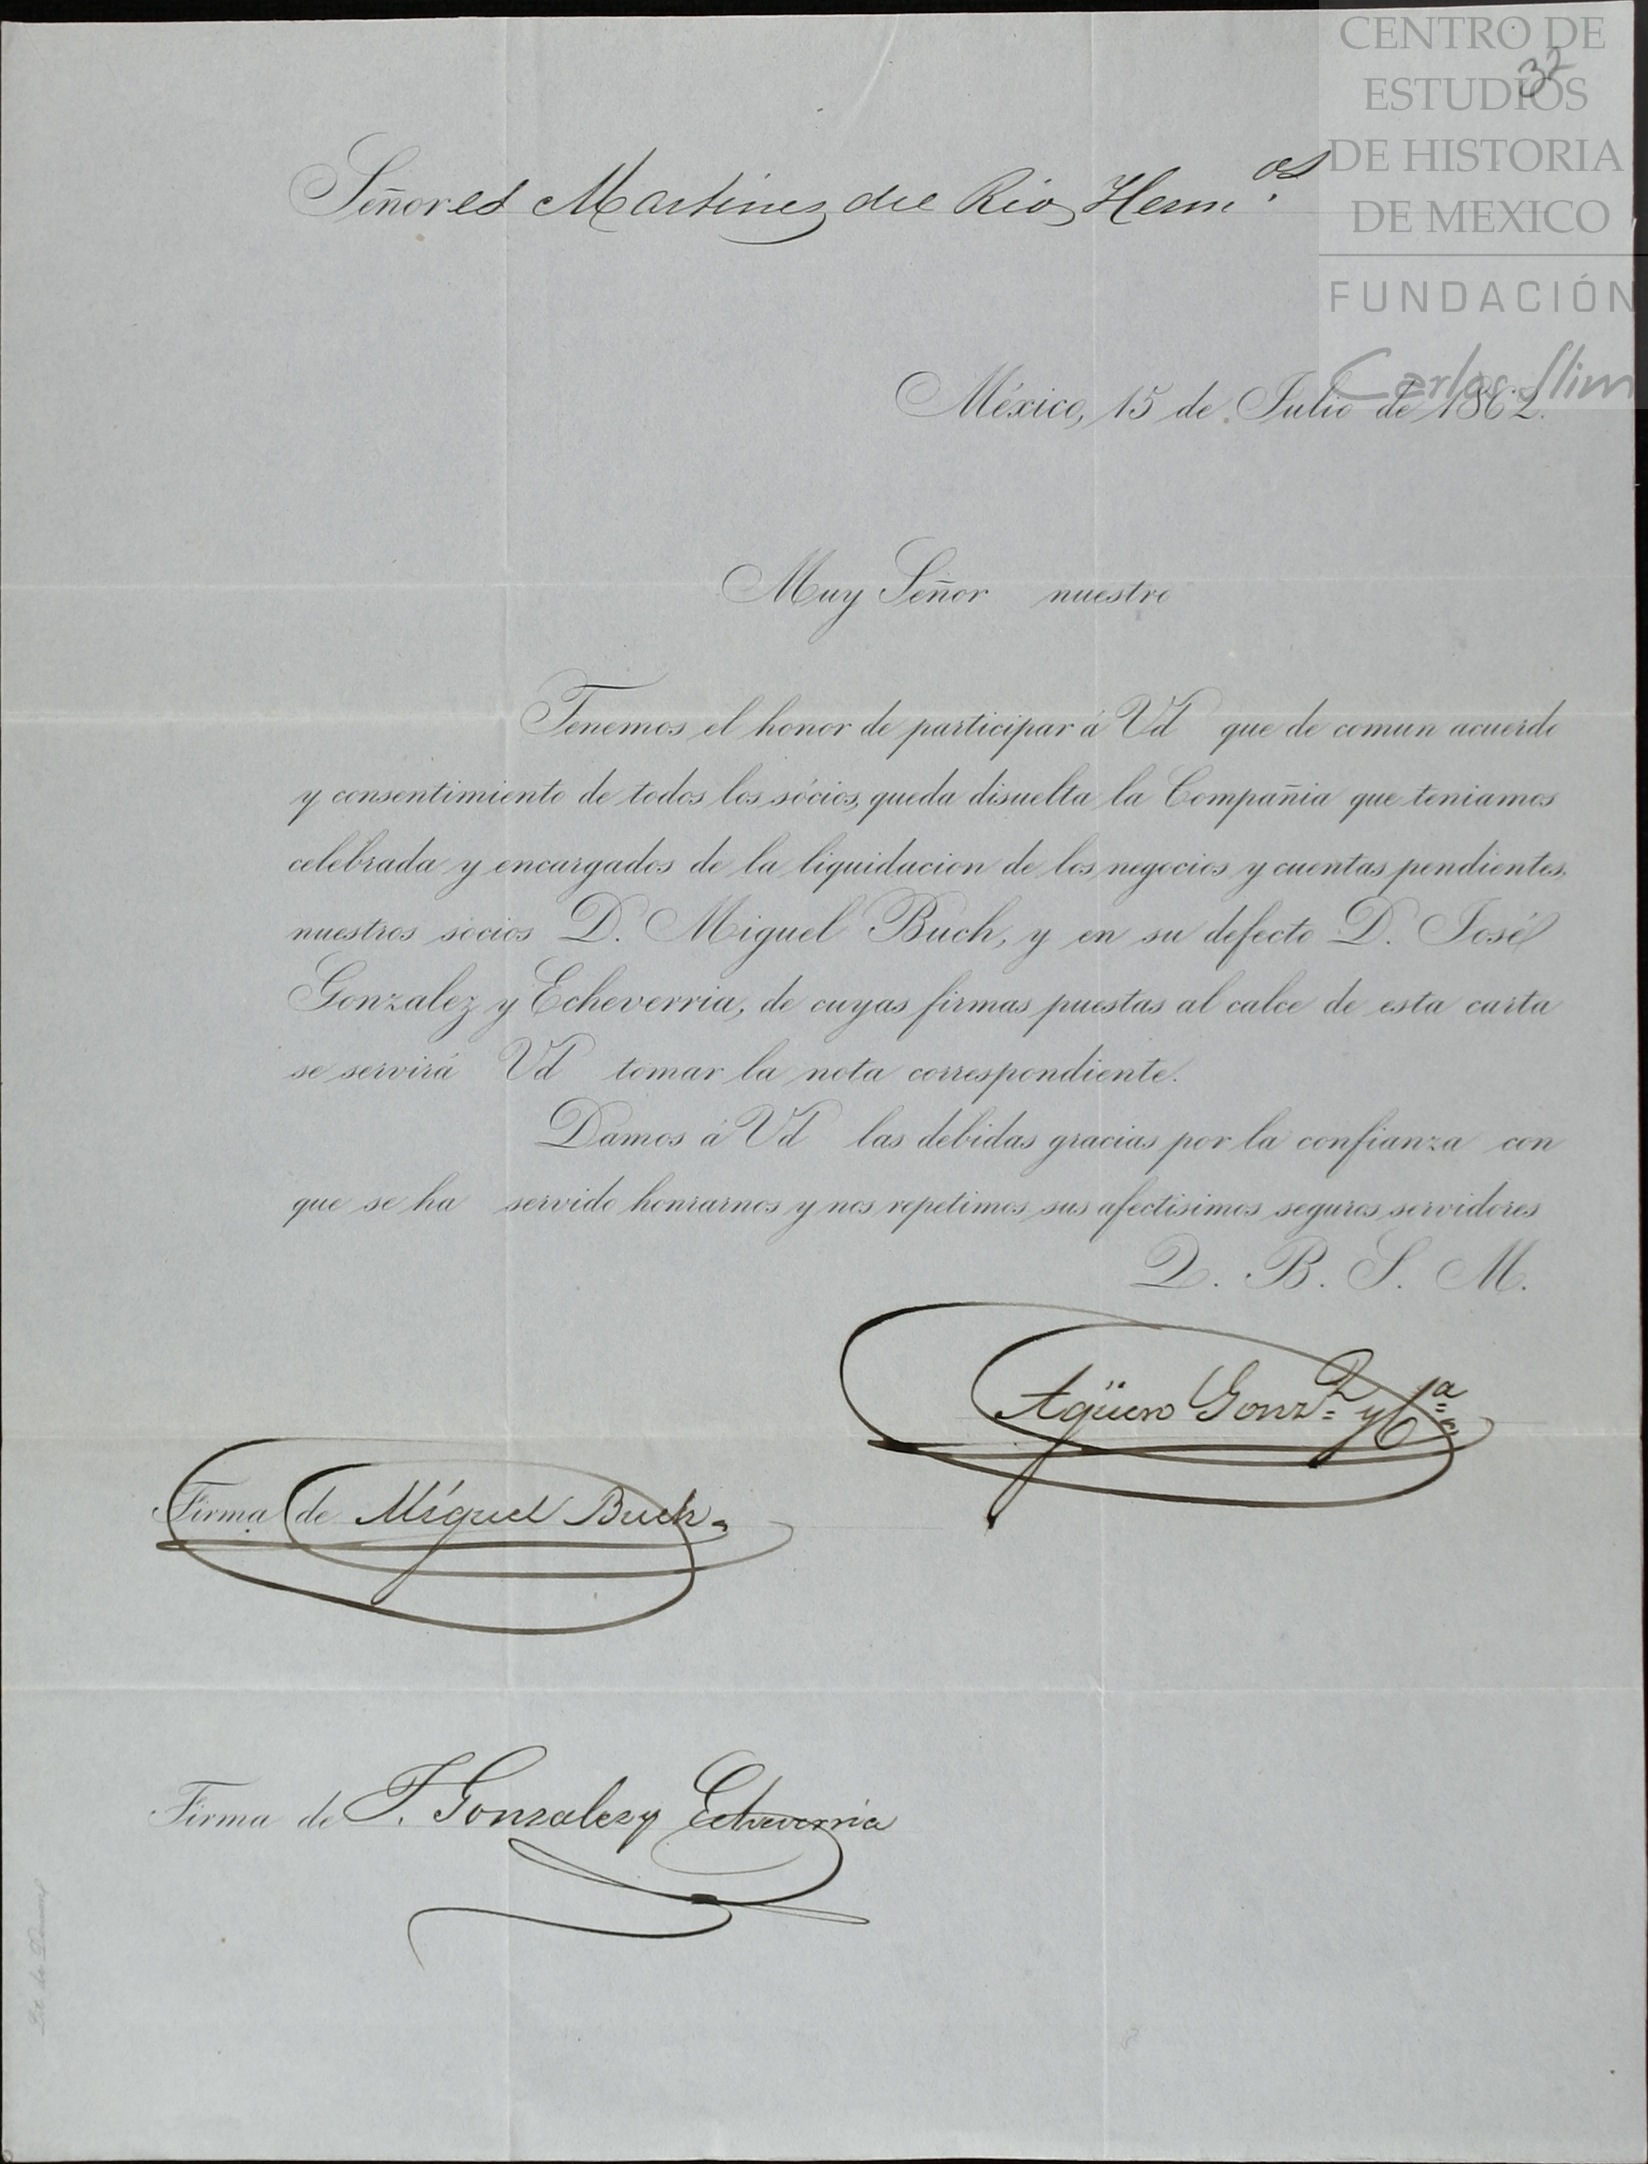 CENTRO DE
ESTUDIOS
DE HISTORIA
DE MEXICO
FUNDACIÓN
Carlos Slim
32
Señores Martinez del Rio Herm.os
México, 15 de Julio de 1862.
Muy Señor nuestro
Tenemos el honor de participar á Vd que de comun acuerdo
y consentimiento de todos los sócios, queda disuelta la Compañia que teniamos
celebrada y encargados de la liquidacion de los negocios y cuentas pendientes,
nuestros sócios D. Miguel Buch, y en su defecto D. José
Gonzalez y Echeverria, de cuyas firmas puestas al calce de esta carta
se servirá Vd tomar la nota correspondiente.
Damos á Vd las debidas gracias por la confianza con
que se ha servido honrarnos y nos repetimos sus afectisimos seguros servidores
Q. B. S. M.
Agüero Gonz.z y C.a
Firma de Miguel Buch.
Firma de J. Gonzalez y Echeverria